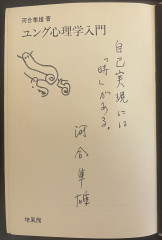 河合隼雄 著
ユング心理学入門
自己実現には
「時」がある。
河合隼雄
培風館